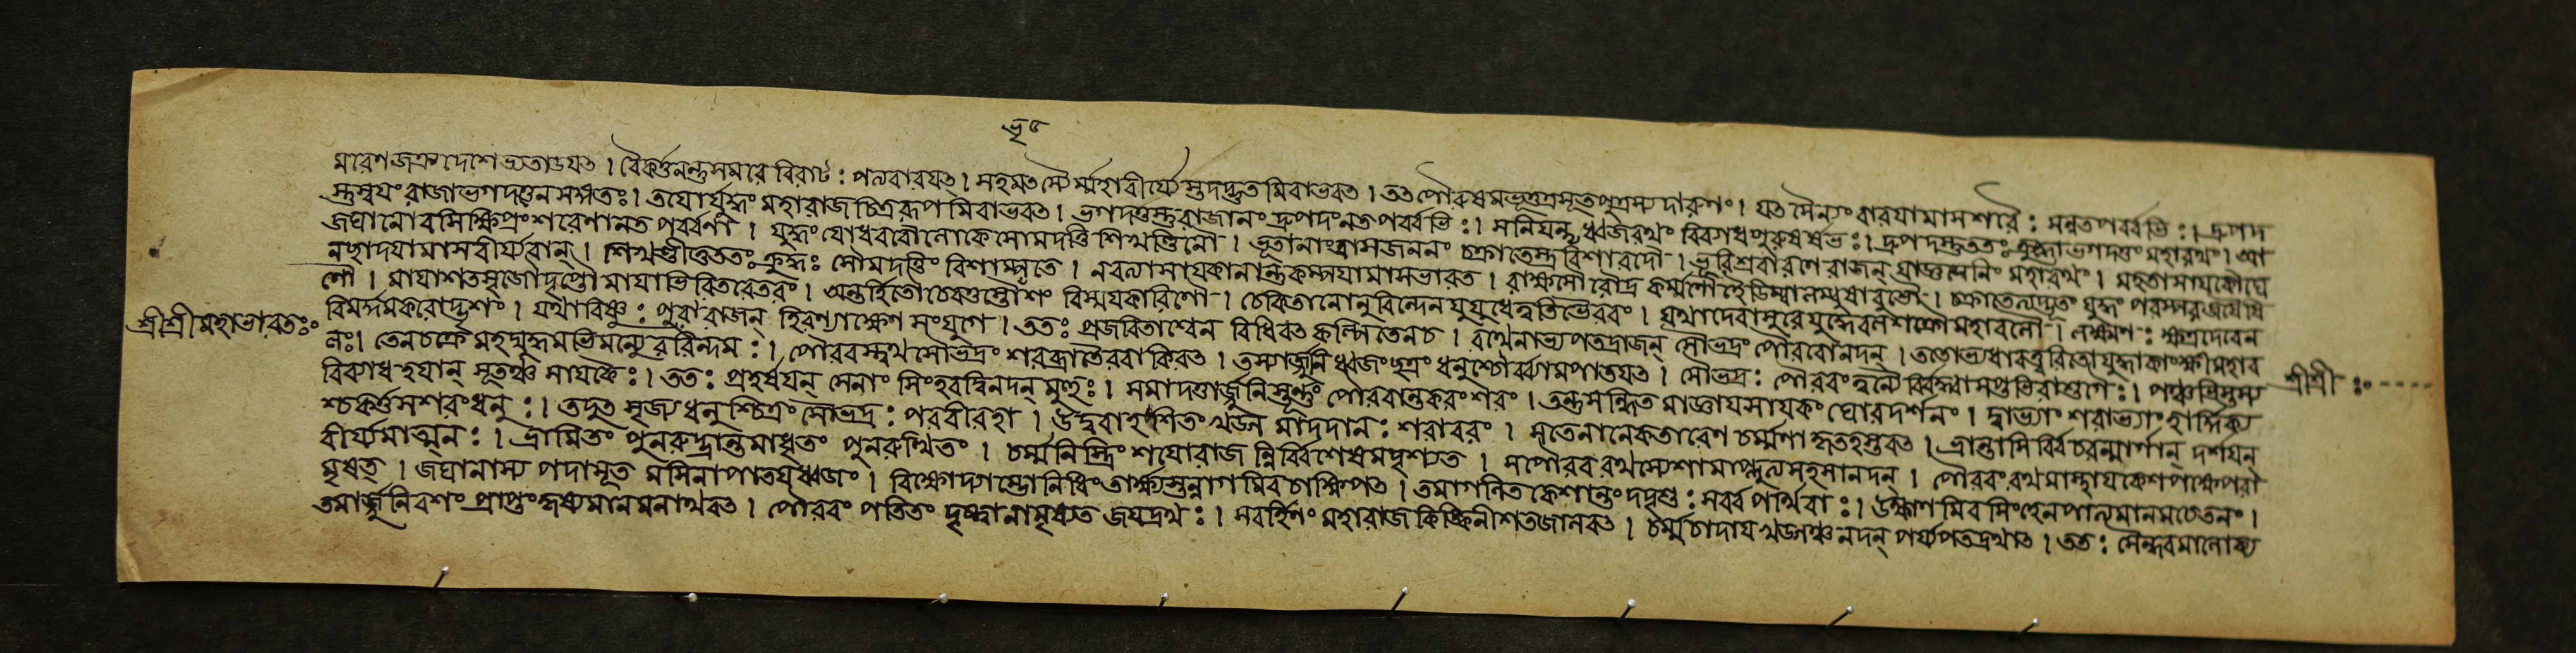 ভৃ৫
মরেণজত্রুদেশেভ্যতাডযৎ । বৈকর্ত্তনন্তুসমরে বিরাট : পর্য্যবারযৎ । সহমৎস্যৈর্ম্মহাবীর্য্যৈস্তদদ্ভুতমিবাভবৎ । তত্রপৌরুষমভূত্তত্রসূতপুত্রস্য দারুণং । যৎ সৈন্যং বারযামাসশরৈ : সন্নতপর্ব্বভি : । দ্রুপদ
স্তুস্বযং রাজাভগদত্তেনসঙ্গতঃ । তযোর্যুদ্ধং মহারাজচিত্ররূপমিবাভবৎ । ভগদত্তস্তুরাজানং দ্রুপদং নতপর্ব্বভি : । সনিযন্তৃধ্বজরথং বিব্যাধপুরুষর্ষভ : । দ্রুপদস্তুততঃ ক্রুদ্ধোভগদত্তং মহারথং । আ
জঘানোরসিক্ষিপ্রং শরেণানতপর্ব্বণা । যুদ্ধং যোধবরৌলোকে সোমদত্তিশিখণ্ডিনৌ । ভূতানাং ত্রাসজননং চক্রাতেস্ত্রবিশারদৌ । ভূরিশ্রবারণেরাজন্ যাজ্ঞসেনিং মহারথং । মহতাসাযকৌঘে
নচ্ছাদযামাসবীর্য্যবান্ । শিখণ্ডীতুততঃ ক্রুদ্ধঃ সৌমদত্তিং বিশাম্পতে । নবত্যাসাযকানান্তুকম্পযামাসভারত । রাক্ষসৌরৌদ্রকর্ম্মাণৌহৈডিম্বালম্বুষাবুভৌ । চক্রাতেত্যদ্ভুতং যুদ্ধং পরস্পরজযৈষি
ণৌ । মাযাশতসৃজৌদৃপ্তৌ মাযাভিরিতরেতরং । অন্তর্হিতৌচেরতুস্তৌভৃশং বিস্ময়কারিণৌ । চেকিতানোনুবিন্দেনযুযুধেত্বতিভৈরবং । যথাদেবাসুরেযুদ্ধেবলশক্রৌমহাবলৌ । লক্ষ্মণ : ক্ষত্রদেবেন
বিমর্দ্দমকরোদ্ভৃশং । যথাবিষ্ণু : পুরারাজন্ হিরণ্যাক্ষেণ সংযুগে । ততঃ প্রজবিতাশ্বেন বিধিবৎকল্পিতেনচ । রথেনাভ্যপতদ্রাজন্ সৌভদ্রং পৌরবোনদন্ । ততোভ্যধাবত্ত্বরিতোযুদ্ধাকাংক্ষীমহাব
লঃ । তেনচক্রে মহদ্যুদ্ধমভিমন্যুররিন্দম : । পৌরবস্ত্বথসৌভদ্রং শরব্রাতৈরবাকিরৎ । তস্যার্জ্জুনির্ধ্বজং ছত্রং ধনুশ্চোর্ব্ব্যামপাতযৎ । সৌভদ্র : পৌরবং ত্বন্যৈর্বিদ্ধ্বাসপ্তভিরাশুগৈ : । পঞ্চভিস্তস্য
বিব্যাধহযান্ সূতঞ্চ সাযকৈঃ । তত : প্রহর্ষযন্ সেনাং সিংহবদ্বিনদন্মুহুঃ । সমাদত্তার্জ্জুনিস্তূর্ণং পৌরবান্তকরং শরং । তন্তুসন্ধিতমাজ্ঞাযসাযকং ঘোরদর্শনং । দ্বাভ্যাং শরাভ্যাং হার্দ্দিক্য
শ্চকর্ত্তসশরং ধনু : । তদুৎসৃজ্যধনুশ্চিত্রং সৌভদ্র : পরবীরহা । উদ্ববার্হশিতং খড্গমাদদান : শরাবরং । সতেনানেকতারেণ চর্ম্মণাকৃতহস্তবৎ । ভ্রান্তাসির্বিচরন্মার্গান্ দর্শযন্
বীর্য্যমাত্মন : । ভ্রামিতং পুনরুদ্ভ্রান্তমাধূতং পুনরুত্থিতং । চর্ম্মনিস্ত্রিংশযোরাজন্নির্বিশেষমদৃশ্যত । সপৌরবরথস্যেশামাপ্লুত্যসহসানদন্ । পৌরবং রথমাস্থাযকেশপক্ষেপরা
মৃষৎ । জঘানাস্য পদাসূতমসিনাপাতযদ্ধ্বজং । বিক্ষোভ্যাম্ভোনিধিং তার্ক্ষ্যস্তন্নাগমিবচাক্ষিপৎ । তমাগলিতকেশান্তং দদৃশু : সর্ব্বপার্থিবা : । উক্ষাণমিবসিংহেনপাত্যমানমচেতনং ।
তমার্জ্জুনিবশং প্রাপ্তং কৃষ্যমানমনাথবৎ । পৌরবং পতিতং দৃষ্ট্বানামৃষ্যত জযদ্রথ : । সবর্হিণং মহারাজকিঙ্কিনীশতজালবৎ । চর্ম্মচাদাযখড্গঞ্চনদন্ পর্য্যপতদ্রথাৎ । তত : সৈন্ধবমালোক্য
শ্রীশ্রীমহাভারতঃ
শ্রীশ্রী